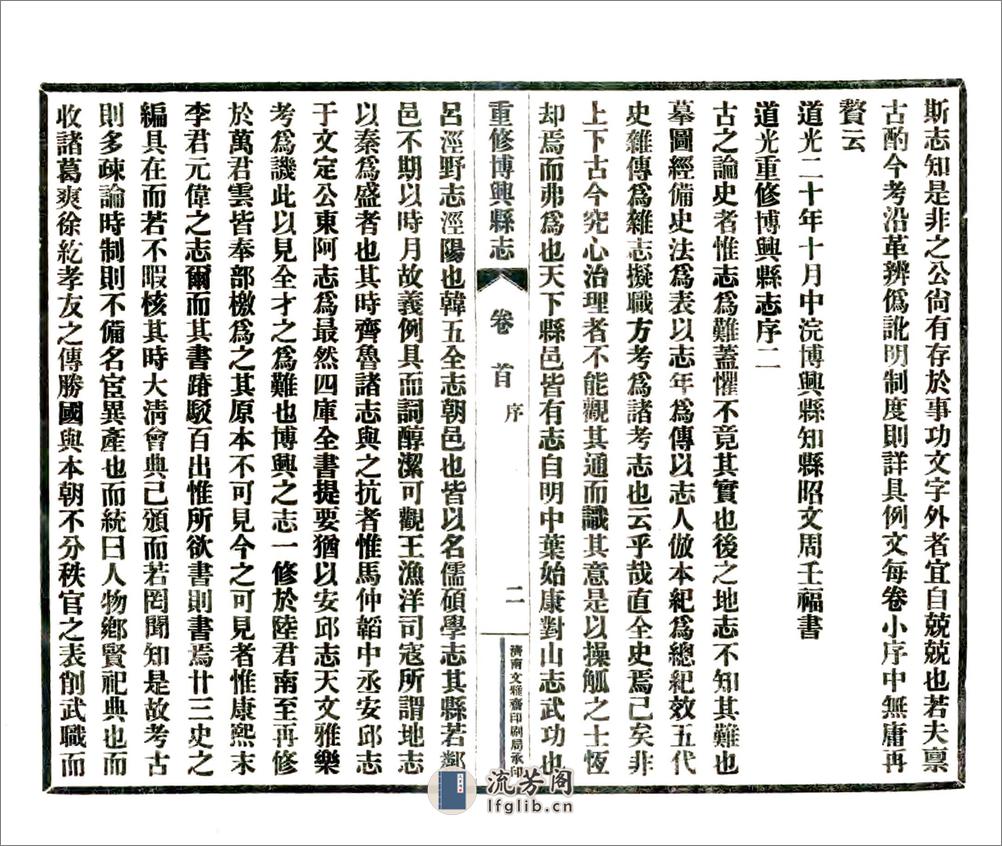 斯志知是非之公尙有存於事功文字外者宜自兢兢也若夫禀
古酌今考沿革辨僞訛明制度則詳具例文每卷小序中無庸再
贅云
道光二十年十月中浣博興縣知縣昭文周壬福書
道光重修博興縣志序二
古之論史者惟志爲難蓋懼不竟其實也後之地志不知其難也
摹圖經備史法爲表以志年爲傳以志人倣本紀爲總紀效五代
史雜傳爲雜志擬職方考爲諸考志也云乎哉直全史焉已矣非
上下古今究心治理者不能觀其通而識其意是以操觚之士恆
却焉而弗爲也天下縣邑皆有志自明中葉始康對山志武功也
重修博興縣志 卷首 序 二 濟南文雅齋印刷局承印
呂涇野志涇陽也韓五全志朝邑也皆以名儒碩學志其縣若鄰
邑不期以時月故義例具而詞醇潔可觀王漁洋司寇所謂地志
以秦爲盛者也其時齊魯諸志與之抗者惟馬仲韜中丞安邱志
于文定公東阿志爲最然四庫全書提要猶以安邱志天文雅樂
考爲譏此以見全才之爲難也博興之志一修於陸君南至再修
於萬君雲皆奉部檄爲之其原本不可見今之可見者惟康熙末
李君元偉之志爾而其書踳駁百出惟所欲書則書焉廿三史之
編具在而若不暇核其時大淸會典已頒而若罔聞知是故考古
則多疎論時制則不備名宦異產也而統曰人物鄉賢祀典也而
收諸葛爽徐紇孝友之傳勝國與本朝不分秩官之表削武職而
流芳阁
lfglib.cn